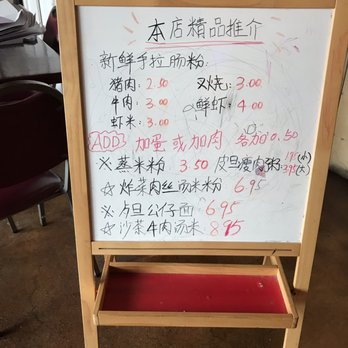 本店精品推介
新鲜手拉肠粉
猪肉: 2.50 叉烧: 3.00
牛肉: 3.00 鲜虾: 4.00
虾米: 3.00
ADD: 加蛋或加肉 各加0.50
※ 蒸米粉 3.50 皮旦瘦肉粥:
☆ 炸菜肉丝汤米粉 6.95
※ 卤旦公仔面 6.95
☆ 沙茶牛肉汤米 8.95